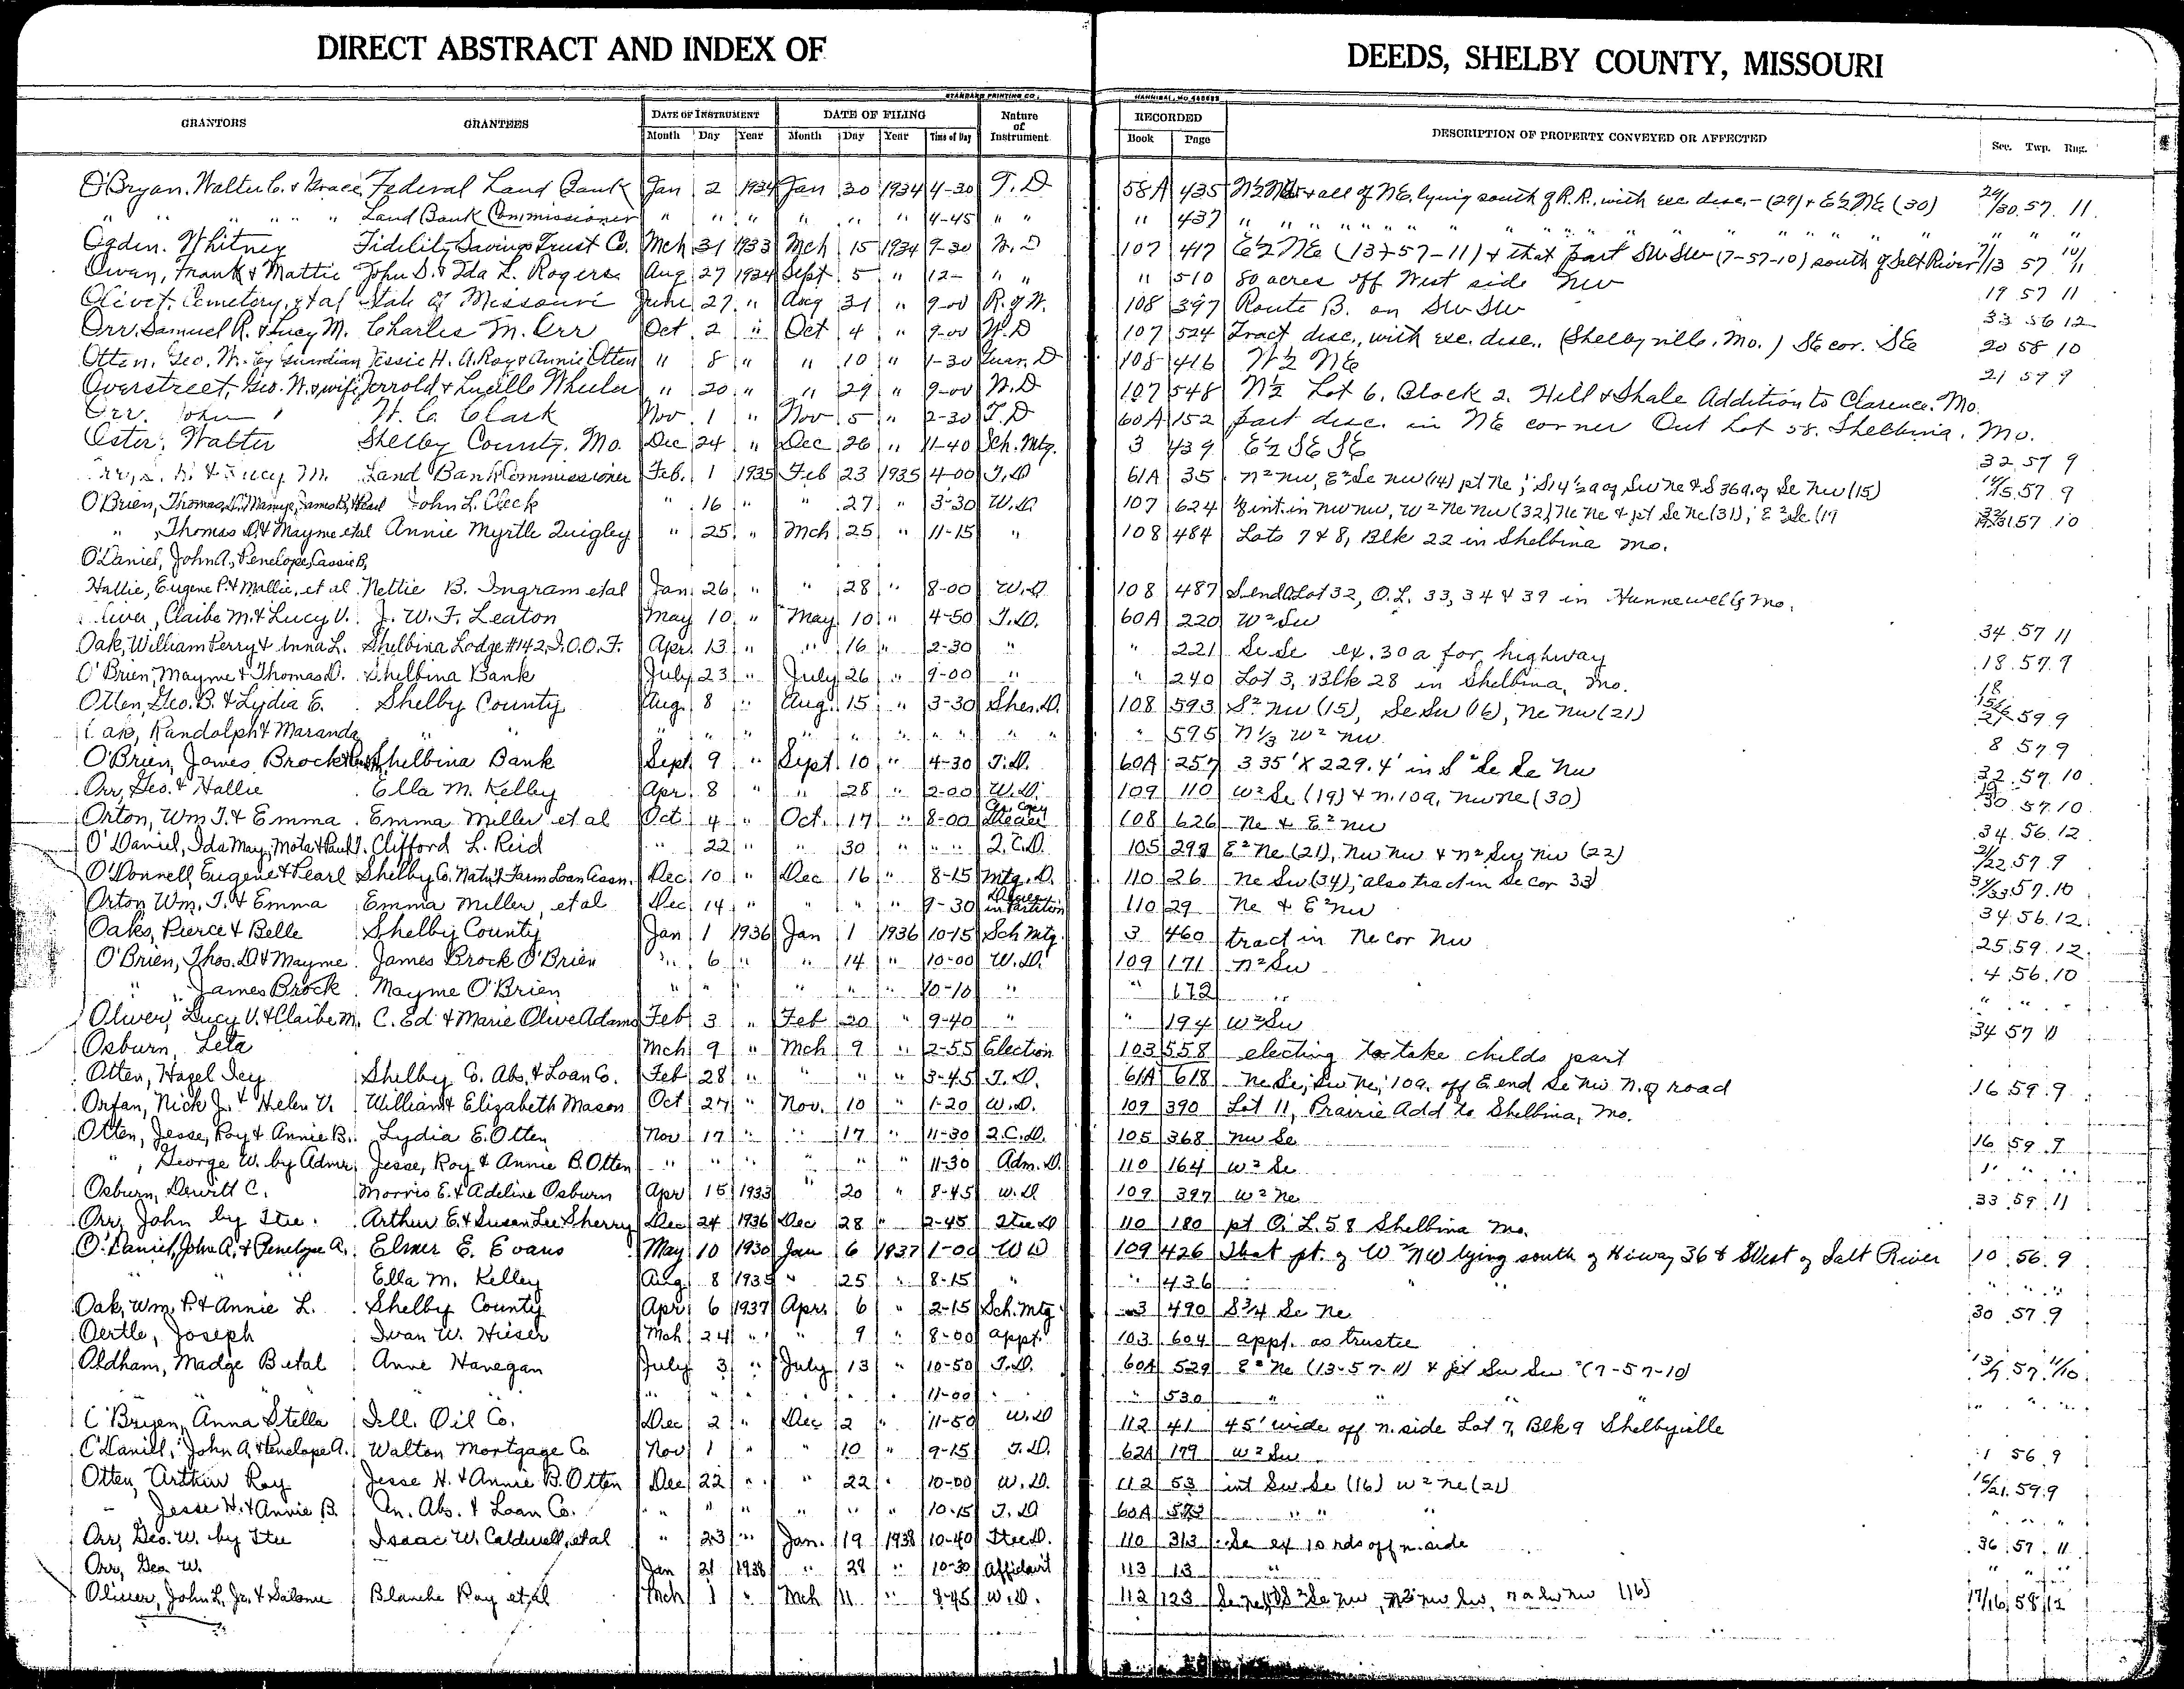 DIRECT ABSTRACT AND INDEX OF DEEDS, SHELBY COUNTY, MISSOURI
STANDARD PRINTING CO. HANNIBAL, MO.
GRANTORS GRANTEES DATE OF INSTRUMENT DATE OF FILING Nature of Instrument RECORDED DESCRIPTION OF PROPERTY CONVEYED OR AFFECTED
Month Day Year Month Day Year Time of Day Book Page Sec. Twp. Rng.
O'Bryan, Walter C. & Grace Federal Land Bank Jan 2 1934 Jan 30 1934 4-30 T.D 58A 435 all of NE. lying south of R.R. with exc. desc. - (29) & E½ NE (30) 29/30 57. 11.
" " " " " " Land Bank Commissioner " " " " " " 4-45 " " " 437 " " " " " " " " " " " " "
Ogden, Whitney Fidelity Savings Trust Co. Mch 31 1933 Mch 15 1934 9-30 W.D 107 417 E½ NE (13-57-11) & that part SW SW (7-57-10) south of Salt River 7/13 57 10/11
Owan, Frank & Mattie John S. & Ida L. Rogers Aug 27 1934 Sept 5 " 12- " " " 510 80 acres off West side NW 19 57 11
Olivet Cemetery, et al State of Missouri June 27 " Aug 31 " 9-00 R. of W. 108 397 Route B. on SW SW 33 56 12
Orr, Samuel R. & Lucy M. Charles M. Orr Oct 2 " Oct 4 " 9-00 W.D 107 524 Tract desc., with exc. desc., (Shelbyville, Mo.) SE cor. SE 20 58 10
Otten, Geo. W. by Guardian Jessie H. A. Roy & Annie Otten " 8 " " 10 " 1-30 Guar. D 108 416 W½ NE 21 59 9
Overstreet, Geo. W. & wife Jerrold & Lucille Wheeler " 20 " " 29 " 9-00 W.D 107 548 N½ Lot 6, Block 2. Hill & Shale Addition to Clarence, Mo.
Orr, John W. C. Clark Nov. 1 " Nov 5 " 2-30 T.D 60A 152 part desc. in NE corner Out Lot 58. Shelbina, Mo.
Oster, Walter Shelby County, Mo. Dec 24 " Dec 26 " 11-40 Sch. Mtg. 3 439 E½ SE SE 32 57 9
Orr, S. R. & Lucy M. Land Bank Commissioner Feb. 1 1935 Feb 23 1935 4-00 T.D 61A 35 N² NW, E² Se NW (14) pt Ne; S14½a of SW Ne & S 36a. of Se NW (15) 14/15. 57. 9
O'Brien, Thomas D. & Mamye, James B. & Pearl John L. Cleek " 16 " " 27 " 3-30 W.D. 107 624 int. in NW NW, W² Ne NW (32) Ne Ne & pt Se Ne (31); E² Se (19 57 10
" , Thomas D. & Mayme et al Annie Myrtle Quigley " 25 " Mch 25 " 11-15 " 108 484 Lots 7 & 8, Blk 22 in Shelbina Mo.
O'Daniel, John A., Penelope, Cassie B,
Hallie, Eugene P. & Mollie, et al Nettie B. Ingram et al Jan 26 " " 28 " 8-00 W.D 108 487 S. end O Lot 32, O.L. 33, 34 & 39 in Hunnewell, Mo.
Oliver, Claibe M. & Lucy V. J. W. F. Leaton May 10 " May 10 " 4-50 T.D. 60A 220 W² SW 34 57 11
Oak, William Perry & Anna L. Shelbina Lodge #142, I.O.O.F. Apr. 13 " " 16 " 2-30 " " 221 Se Se ex. 30 a for highway 18. 57. 9
O'Brien, Mayme & Thomas D. Shelbina Bank July 23 " July 26 " 9-00 " " 240 Lot 3, Blk 28 in Shelbina, Mo.
Otten, Geo. B. & Lydia E. Shelby County Aug. 8 " Aug. 15 " 3-30 Sher. D. 108 593 S² NW (15), Se SW (16), Ne NW (21) 15/16/21 59 9
Oak, Randolph & Maranda " " " " " " " " " " " 595 N ⅓ W² NW 8 57 9
O'Brien, James Brock & Shelbina Bank Sept. 9 " Sept. 10 " 4-30 T.D. 60A 257 335' X 229.4' in S² Se Se NW 32 57 10
Orr, Geo. & Hallie Ella M. Kelley Apr 8 " " 28 " 2-00 W.D. 109 110 W² Se (19) & N. 10a, NW Ne (30) 19/30 57 10
Orton, Wm T. & Emma Emma Miller et al Oct 4 " Oct. 17 " 8-00 Cer. Copy Decree 108 626 Ne & E² NW 34. 56. 12
O'Daniel, Ida May, Mota & Paul J. Clifford L. Reid " 22 " " 30 " " " Q.C.D. 105 299 E² Ne (21), NW NW & N² SW NW (22) 21/22 57. 9
O'Donnell, Eugene & Pearl Shelby Co. Nat'l Farm Loan Assn. Dec 10 " Dec 16 " 8-15 Mtg. D. 110 26 Ne SW (34); also tract in Se cor 33 34/33 57. 10
Orton Wm. T. & Emma Emma Miller, et al Dec 14 " " " " 9-30 Decree in Partition 110 29 Ne & E² NW 34 56. 12
Oaks, Pierce & Belle Shelby County Jan 1 1936 Jan 1 1936 10-15 Sch Mtg. 3 460 tract in Ne cor NW 25 59. 12.
O'Brien, Thos. D & Mayme James Brock O'Brien " 6 " " 14 " 10-00 W.D. 109 171 N² SW 4. 56. 10
" " James Brock Mayme O'Brien " " " " " " 10-10 " " 172 " " " "
Oliver, Lucy V. & Claibe M. C. Ed & Marie Olive Adams Feb 3 " Feb 20 " 9-40 " " 194 W² SW 34 57 11
Osburn, Leta Mch 9 " Mch 9 " 2-55 Election 103 558 electing to take childs part
Otten, Hazel Icy Shelby Co. Abs. & Loan Co. Feb 28 " " " " 3-45 T.D. 61A 618 Ne Se; SW Ne; 10a. off E. end Se NW N. of road 16 59. 9
Orfan, Nick J. & Helen V. William & Elizabeth Mason Oct 27 " Nov. 10 " 1-20 W.D. 109 390 Lot 11, Prairie Add to Shelbina, Mo.
Otten, Jesse, Roy & Annie B. Lydia E. Otten Nov 17 " " 17 " 11-30 Q.C.D. 105 368 NW Se 16 59. 9
" , George W. by Admr. Jesse, Roy & Annie B. Otten " " " " " " 11-30 Adm. D. 110 164 W² Se " " "
Osburn, Dewitt C. Morris E. & Adeline Osburn Apr 15 1933 " 20 " 8-45 W.D 109 397 W² Ne 33 59. 11
Orr, John by Stee. Arthur E. & Susan Lee Sherry Dec 24 1936 Dec 28 " 2-45 Stee D 110 180 pt O. L. 58 Shelbina Mo.
O'Daniel, John A. & Penelope A. Elmer E. Evans May 10 1930 Jan 6 1937 1-00 W D 109 426 That pt. of W² NW lying south of Hiway 36 & West of Salt River 10 56. 9
" " Ella M. Kelley Aug 8 1935 " 25 " 8-15 " " 436 " " " " " "
Oak, Wm. P. & Annie L. Shelby County Apr 6 1937 Apr. 6 " 2-15 Sch. Mtg 3 490 S ¾ Se Ne 30 57 9
Oertle, Joseph Ivan W. Hieser Mch 24 " " 9 " 8-00 appt. 103 604 appt. as trustee
Oldham, Madge B et al Anne Hanegan July 3 " July 13 " 10-50 T.D. 60A 529 E² Ne (13-57-11) & pt SW SW (7-57-10) 13/7 57. 11/10
" " " " " " 11-00 " " 530 " " " " " " "
O'Bryen, Anna Stella Ill. Oil Co. Dec 2 " Dec 2 " 11-50 W.D 112 41 45' wide off N. side Lot 7, Blk 9 Shelbyville
O'Daniel, John A. & Penelope A. Walton Mortgage Co. Nov 1 " " 10 " 9-15 T.D. 62A 179 W² SW 1 56. 9
Otten, Arthur Roy Jesse H. & Annie B. Otten Dec 22 " " 22 " 10-00 W.D. 112 53 int SW Se (16) W² Ne (21) 16/21. 59. 9
" Jesse H. & Annie B. An. Abs. & Loan Co. " " " " " " 10-15 T.D 60A 573 " " " " " "
Orr, Geo. W. by Stee Isaac W. Caldwell, et al " 23 " Jan. 19 1938 10-40 Stee D. 110 313 Se ex 10 rds off N. side 36 57. 11
Orr, Geo W. Jan 21 1938 " 28 " 10-30 Affidavit 113 13 " " " "
Oliver, John L. Jr. & Salome Blanche Ray et al Mch 1 " Mch 11 " 8-45 W.D. 112 123 Se NW, N² NW SW, (16) 17/16 58 12